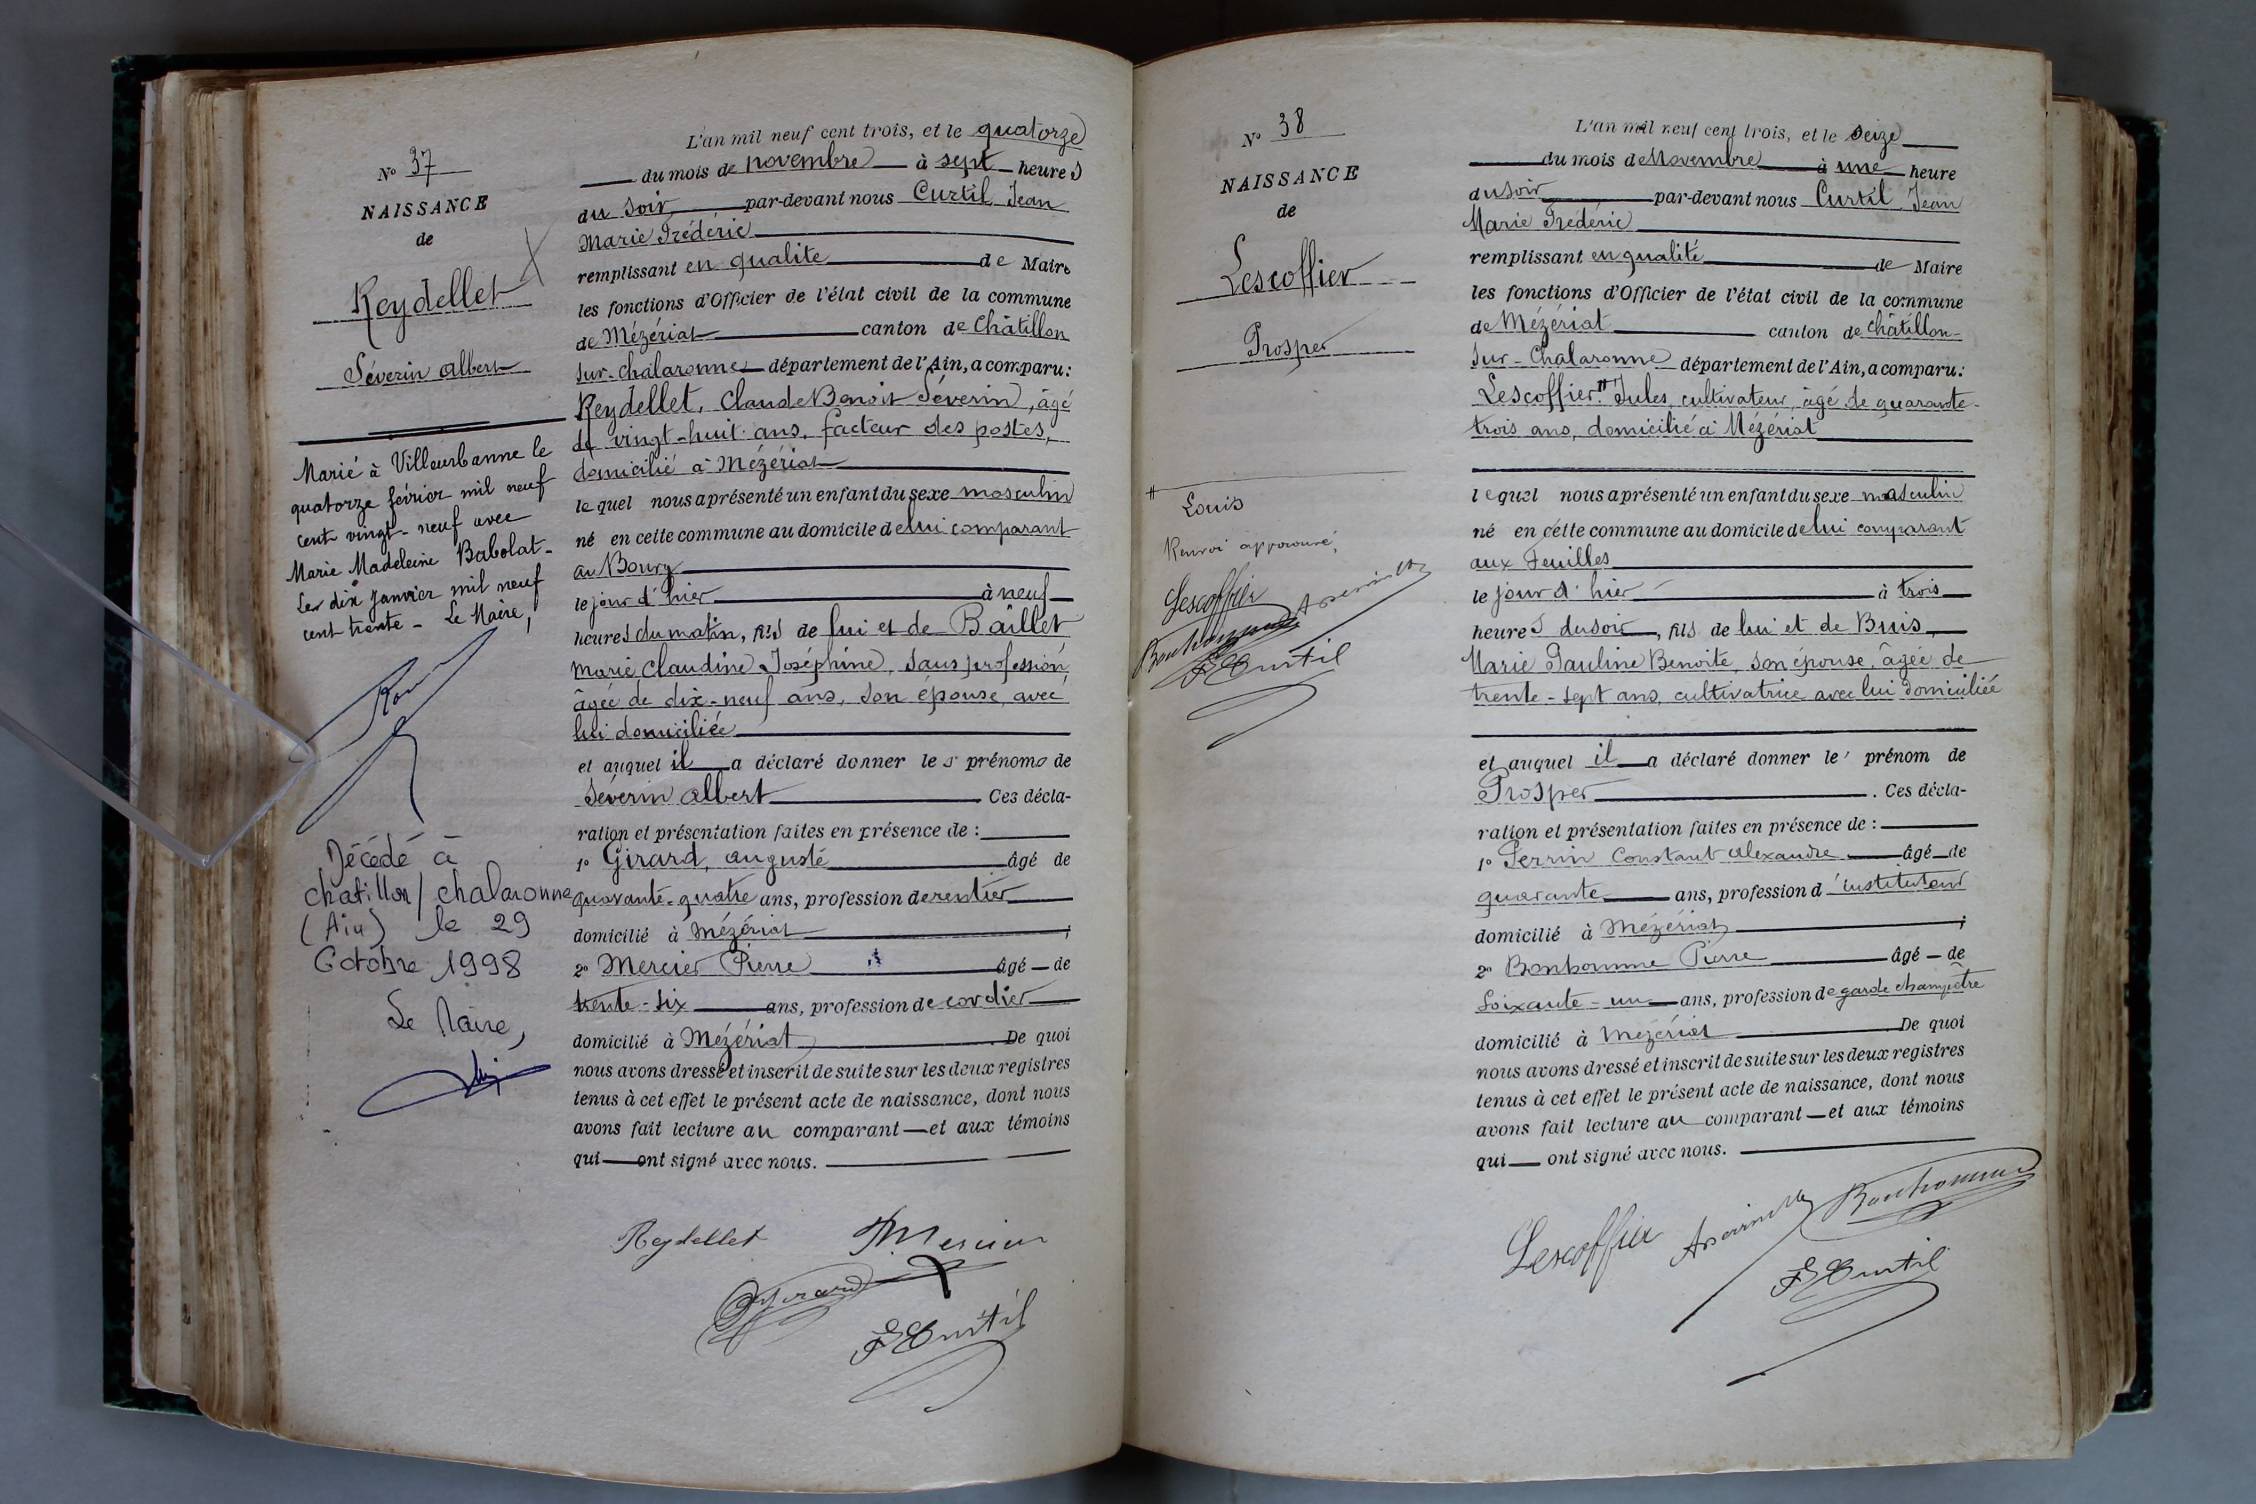 N° 37
NAISSANCE
de
Reydellet
Séverin Albert
Marié à Villeurbanne le
quatorze février mil neuf
cent vingt-neuf avec
Marie Madeleine Babolat-
Le dix janvier mil neuf
cent trente - Le Maire,
Décédé à
Chatillon / Chalaronne
(Ain) le 29
Octobre 1998
Le Maire,
L'an mil neuf cent trois, et le quatorze
du mois de novembre à sept heures
du soir par-devant nous Curtil Jean
Marie Frédéric
remplissant en qualité de Maire
les fonctions d'Officier de l'état civil de la commune
de Mézériat canton de Châtillon
sur-Chalaronne département de l'Ain, a comparu:
Reydellet, Claude Benoit Séverin, âgé
de vingt-huit ans, facteur des postes,
domicilié à Mézériat
lequel nous a présenté un enfant du sexe masculin
né en cette commune au domicile de lui comparant
au Bourg
le jour d'hier à neuf
heures du matin, fils de lui et de Baillet
Marie Claudine Joséphine, sans profession,
âgée de dix-neuf ans, son épouse, avec
lui domiciliée
et auquel il a déclaré donner les prénoms de
Séverin Albert Ces décla-
ration et présentation faites en présence de :
1° Girard, Auguste âgé de
quarante-quatre ans, profession de rentier
domicilié à Mézériat ;
2° Mercier Pierre âgé de
trente-six ans, profession de cordier
domicilié à Mézériat . De quoi
nous avons dressé et inscrit de suite sur les deux registres
tenus à cet effet le présent acte de naissance, dont nous
avons fait lecture au comparant et aux témoins
qui ont signé avec nous.
Reydellet Mercier
Girard
F Curtil
N° 38
NAISSANCE
de
Lescoffier
Prosper
Louis
Renvoi approuvé,
Lescoffier
Bonhomme
F Curtil
L'an mil neuf cent trois, et le seize
du mois de Novembre à une heure
du soir par-devant nous Curtil Jean
Marie Frédéric
remplissant en qualité de Maire
les fonctions d'Officier de l'état civil de la commune
de Mézériat canton de Châtillon-
sur-Chalaronne département de l'Ain, a comparu:
Lescoffier # Jules, cultivateur, âgé de quarante-
trois ans, domicilié à Mézériat
lequel nous a présenté un enfant du sexe masculin
né en cette commune au domicile de lui comparant
aux Feuilles
le jour d'hier à trois
heures du soir, fils de lui et de Buis
Marie Pauline Benoite, son épouse, âgée de
trente-sept ans, cultivatrice avec lui domiciliée
et auquel il a déclaré donner le prénom de
Prosper . Ces décla-
ration et présentation faites en présence de :
1° Perrin Constant Alexandre âgé de
quarante ans, profession d'instituteur
domicilié à Mézériat ;
2° Bonhomme Pierre âgé de
soixante-un ans, profession de garde champêtre
domicilié à Mézériat . De quoi
nous avons dressé et inscrit de suite sur les deux registres
tenus à cet effet le présent acte de naissance, dont nous
avons fait lecture au comparant et aux témoins
qui ont signé avec nous.
Lescoffier Bonhomme
F Curtil